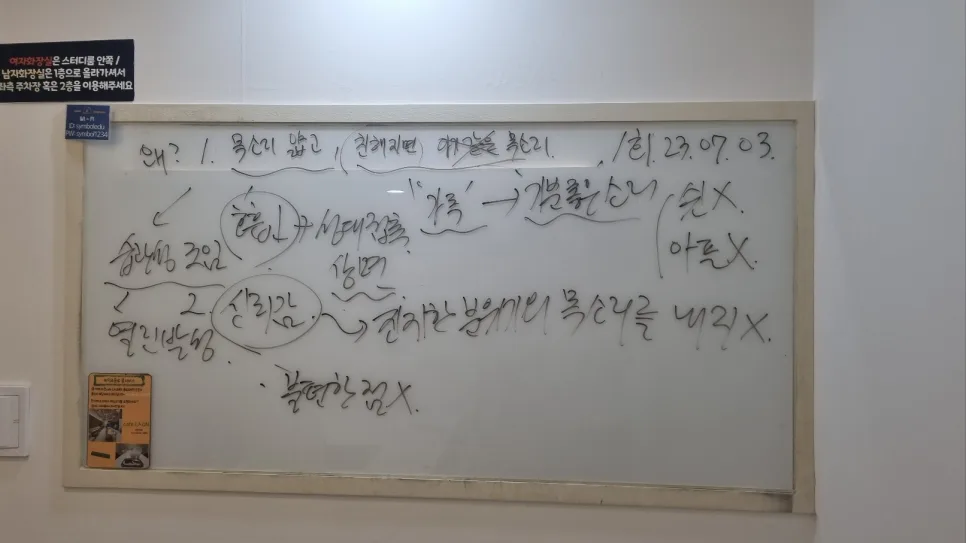 여자화장실은 스터디룸 안쪽 /
남자화장실은 1층으로 올라가셔서
좌측 주차장 혹은 2층을 이용해주세요
Wi-Fi
ID symboledu
PW symbol1234
왜? 1. 목소리 얇고, (친해지면 목소리. 1회. 23.07.03.
호흡↓ + 성대접촉 "가록" → 기분좋은소리 쉰X.
습관성 조임 상면 아픈X.
2. 심리감. → 진지한 분위기의 목소리를 내리X.
열린발성.
· 불편한점X.